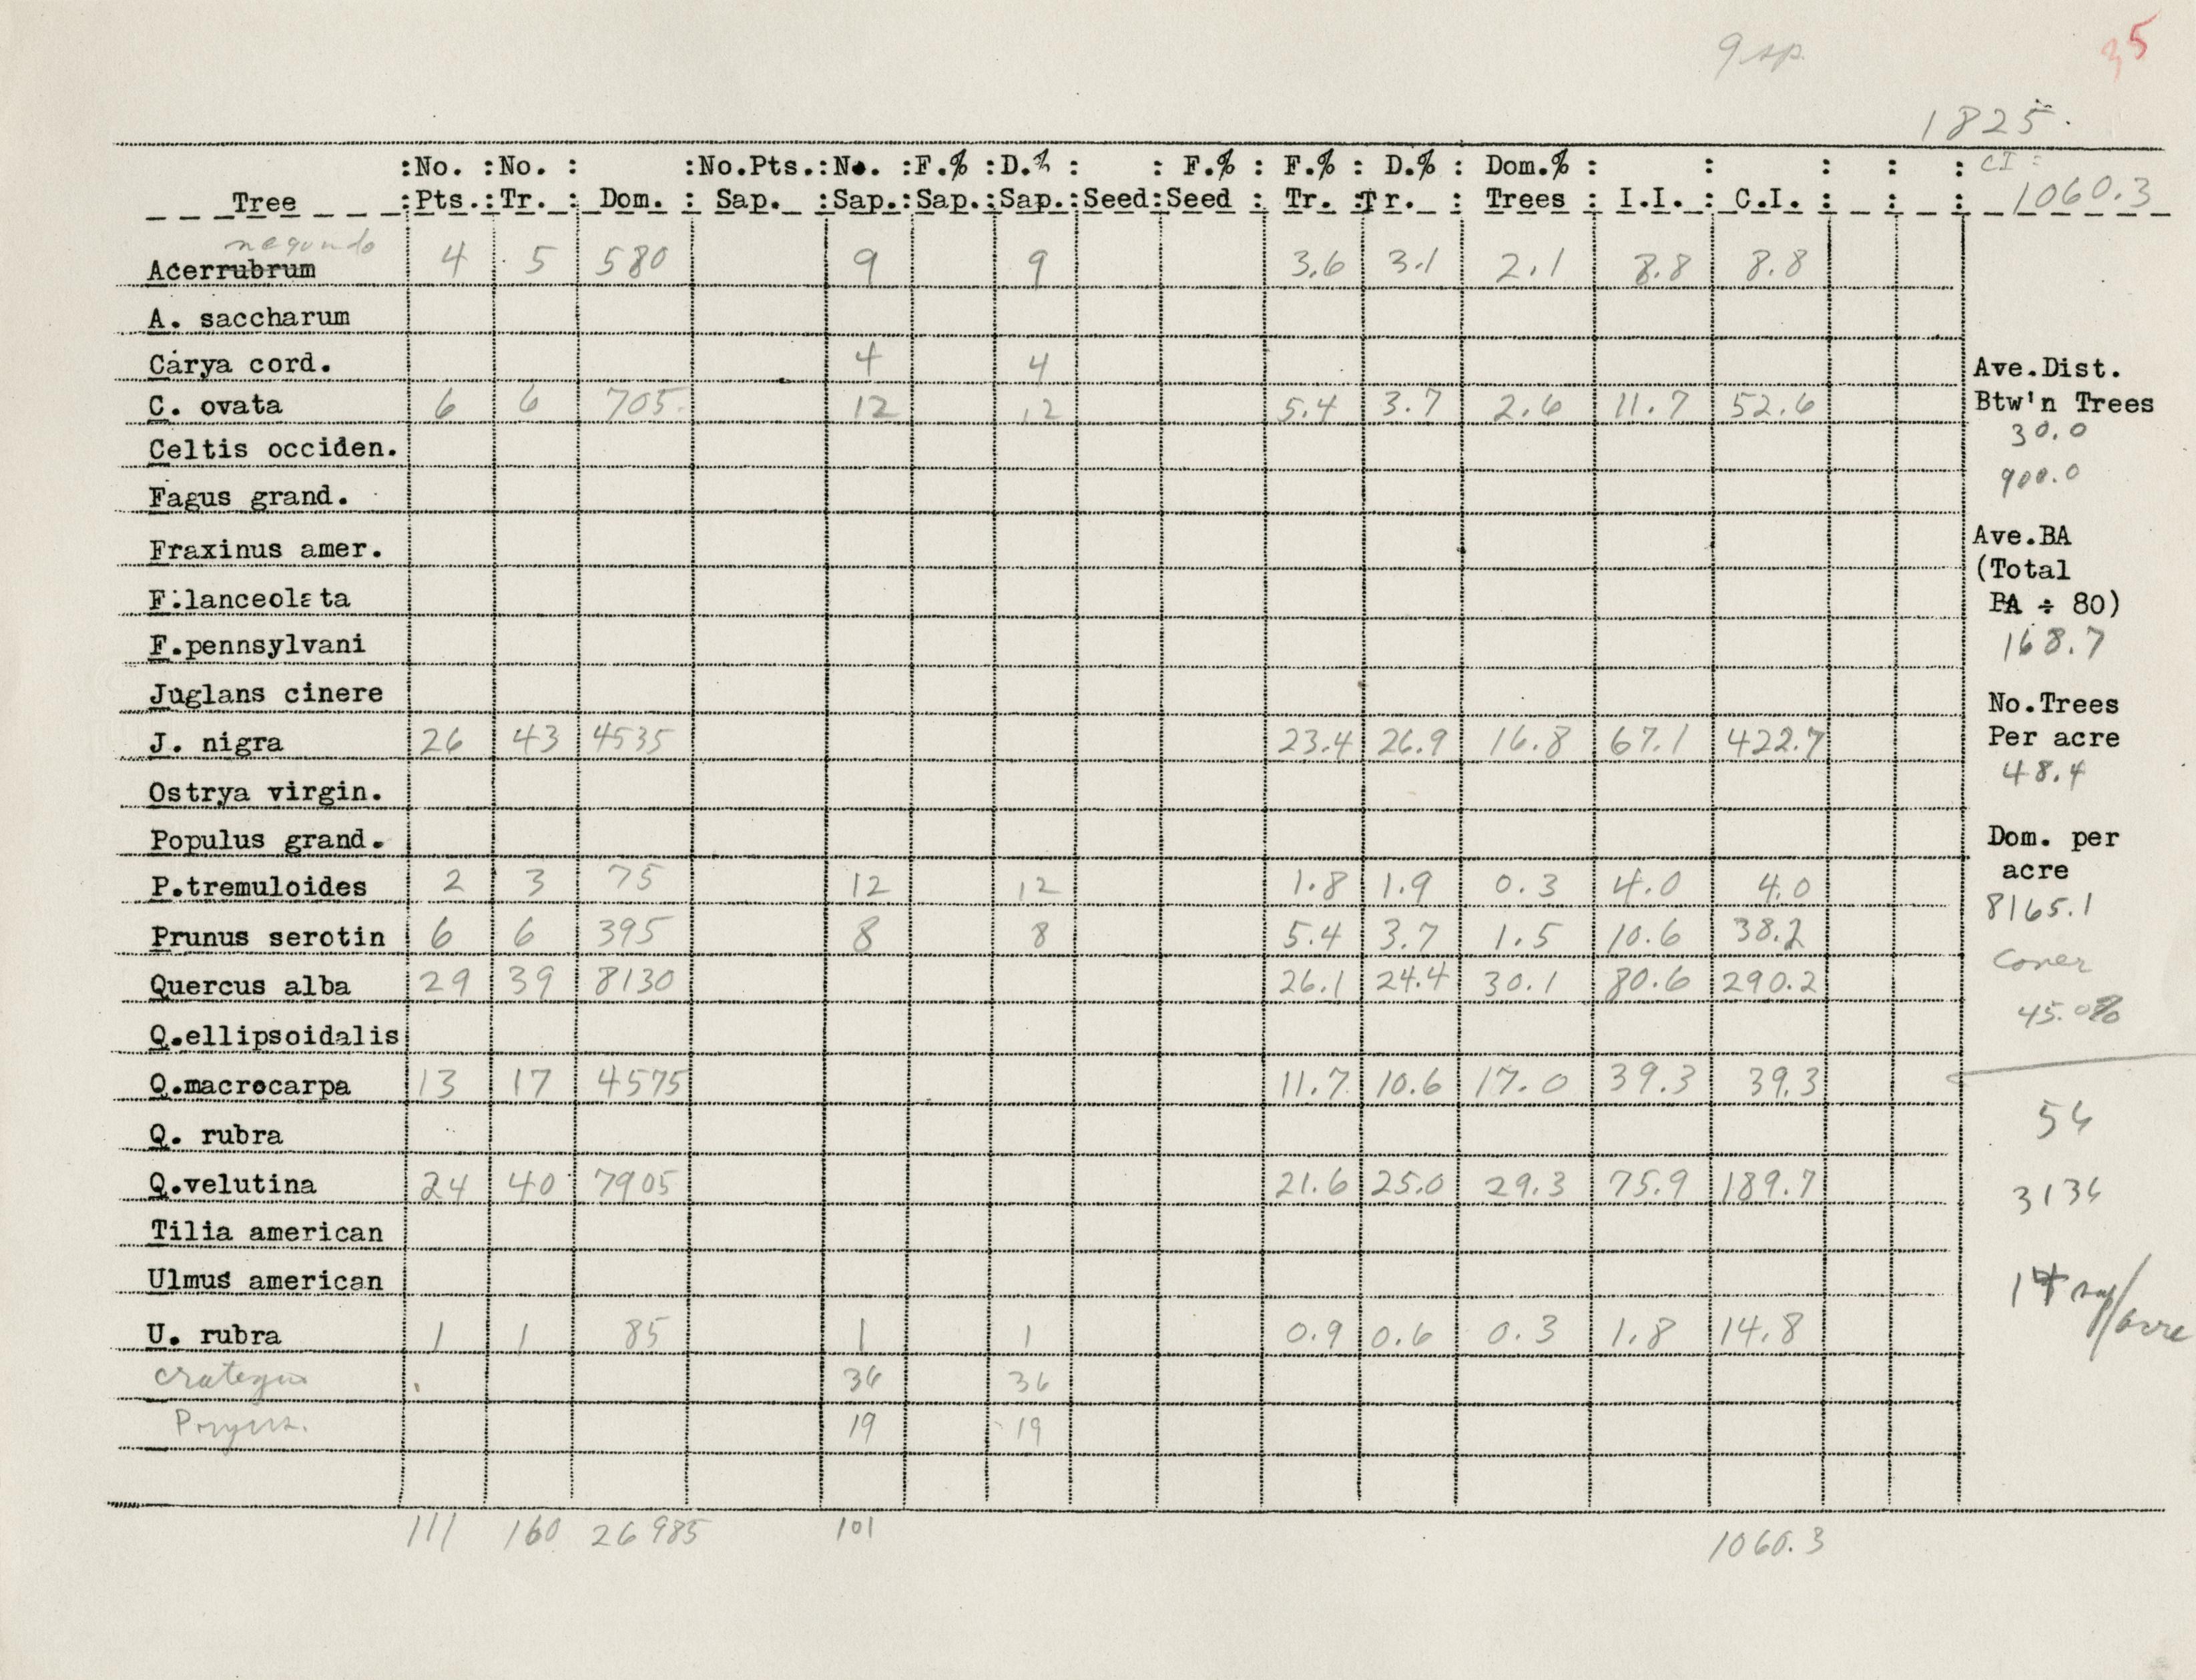 9 sp.
35
1825.
:No. :No. : :No.Pts.:No. :F.% :D.% : : F.% : F.% : D.% : Dom.% : : : : : CI :
Tree :Pts.:Tr. : Dom. : Sap. :Sap.:Sap.:Sap.:Seed:Seed : Tr. :Tr. : Trees : I.I. : C.I. : : : 1060.3
negundo
Acer rubrum 4 5 580 9 9 3.6 3.1 2.1 8.8 8.8
A. saccharum
Carya cord. 4 4
C. ovata 6 6 705 12 12 5.4 3.7 2.6 11.7 52.6
Celtis occiden.
Fagus grand.
Fraxinus amer.
F.lanceolata
F.pennsylvani
Juglans cinere
J. nigra 26 43 4535 23.4 26.9 16.8 67.1 422.7
Ostrya virgin.
Populus grand.
P.tremuloides 2 3 75 12 12 1.8 1.9 0.3 4.0 4.0
Prunus serotin 6 6 395 8 8 5.4 3.7 1.5 10.6 38.2
Quercus alba 29 39 8130 26.1 24.4 30.1 80.6 290.2
Q.ellipsoidalis
Q.macrocarpa 13 17 4575 11.7 10.6 17.0 39.3 39.3
Q. rubra
Q.velutina 24 40 7905 21.6 25.0 29.3 75.9 189.7
Tilia american
Ulmus american
U. rubra 1 1 85 1 1 0.9 0.6 0.3 1.8 14.8
Crategus 36 36
19 19
111 160 26985 101 1060.3
Ave.Dist.
Btw'n Trees
30.0
900.0
Ave.BA
(Total
BA ÷ 80)
168.7
No.Trees
Per acre
48.4
Dom. per
acre
8165.1
Cover
45.0%
56
3136
sap/acre